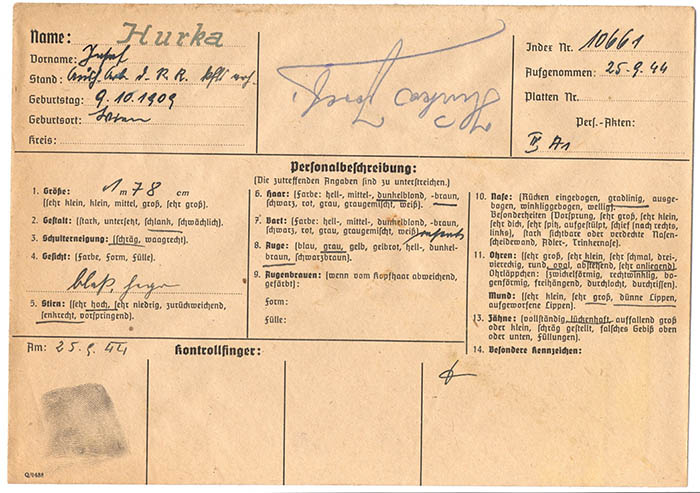 Name: Hurka
Vorname: Josef
Stand: d. R. R.
Geburtstag: 9.10.1909
Geburtsort: Wien
Kreis:
Hurka Josef
Index Nr. 10661
Aufgenommen: 25.9.44
Platten Nr.
Pers.-Akten:
A1
Personalbeschreibung:
(Die zutreffenden Angaben sind zu unterstreichen.)
1. Größe: 1 m 78 cm
(sehr klein, klein, mittel, groß, sehr groß).
2. Gestalt: (stark, untersetzt, schlank, schwächlich).
3. Schulterneigung: (schräg, waagrecht).
4. Gesicht: (Farbe, Form, Fülle).
blaß,
5. Stirn: (sehr hoch, sehr niedrig, zurückweichend,
senkrecht, vorspringend).
6. Haar: (Farbe: hell-, mittel-, dunkelblond, -braun,
schwarz, rot, grau, graugemischt, weiß).
7. Bart: (Farbe: hell-, mittel-, dunkelblond, -braun,
schwarz, rot, grau, graugemischt, weiß) rasiert
8. Auge: (blau, grau, gelb, gelbrot, hell-, dunkel-
braun, schwarzbraun).
9. Augenbrauen: (wenn vom Kopfhaar abweichend,
gefärbt):
Form:
Fülle:
10. Nase: (Rücken eingebogen, gradlinig, ausge-
bogen, winkliggebogen, wellig).
Besonderheiten (Vorsprung, sehr groß, sehr klein,
sehr dick, sehr spitz, aufgestülpt, schief (nach rechts,
links), stark sichtbare oder verdeckte Nasen-
scheidewand, Adler-, Trinkernase).
11. Ohren: (sehr groß, sehr klein, sehr schmal, drei-,
viereckig, rund, oval, abstehend, sehr anliegend)
Ohrläppchen: (zwickelförmig, rechtwinklig, bo-
genförmig, freihängend, durchlocht, durchrissen).
Mund: (sehr klein, sehr groß, dünne Lippen,
aufgeworfene Lippen).
13. Zähne: (vollständig, lückenhaft, auffallend groß
oder klein, schräg gestellt, falsches Gebiß oben
oder unten, Füllungen).
14. Besondere Kennzeichen:
Am: 25.9.44
Kontrollfinger: